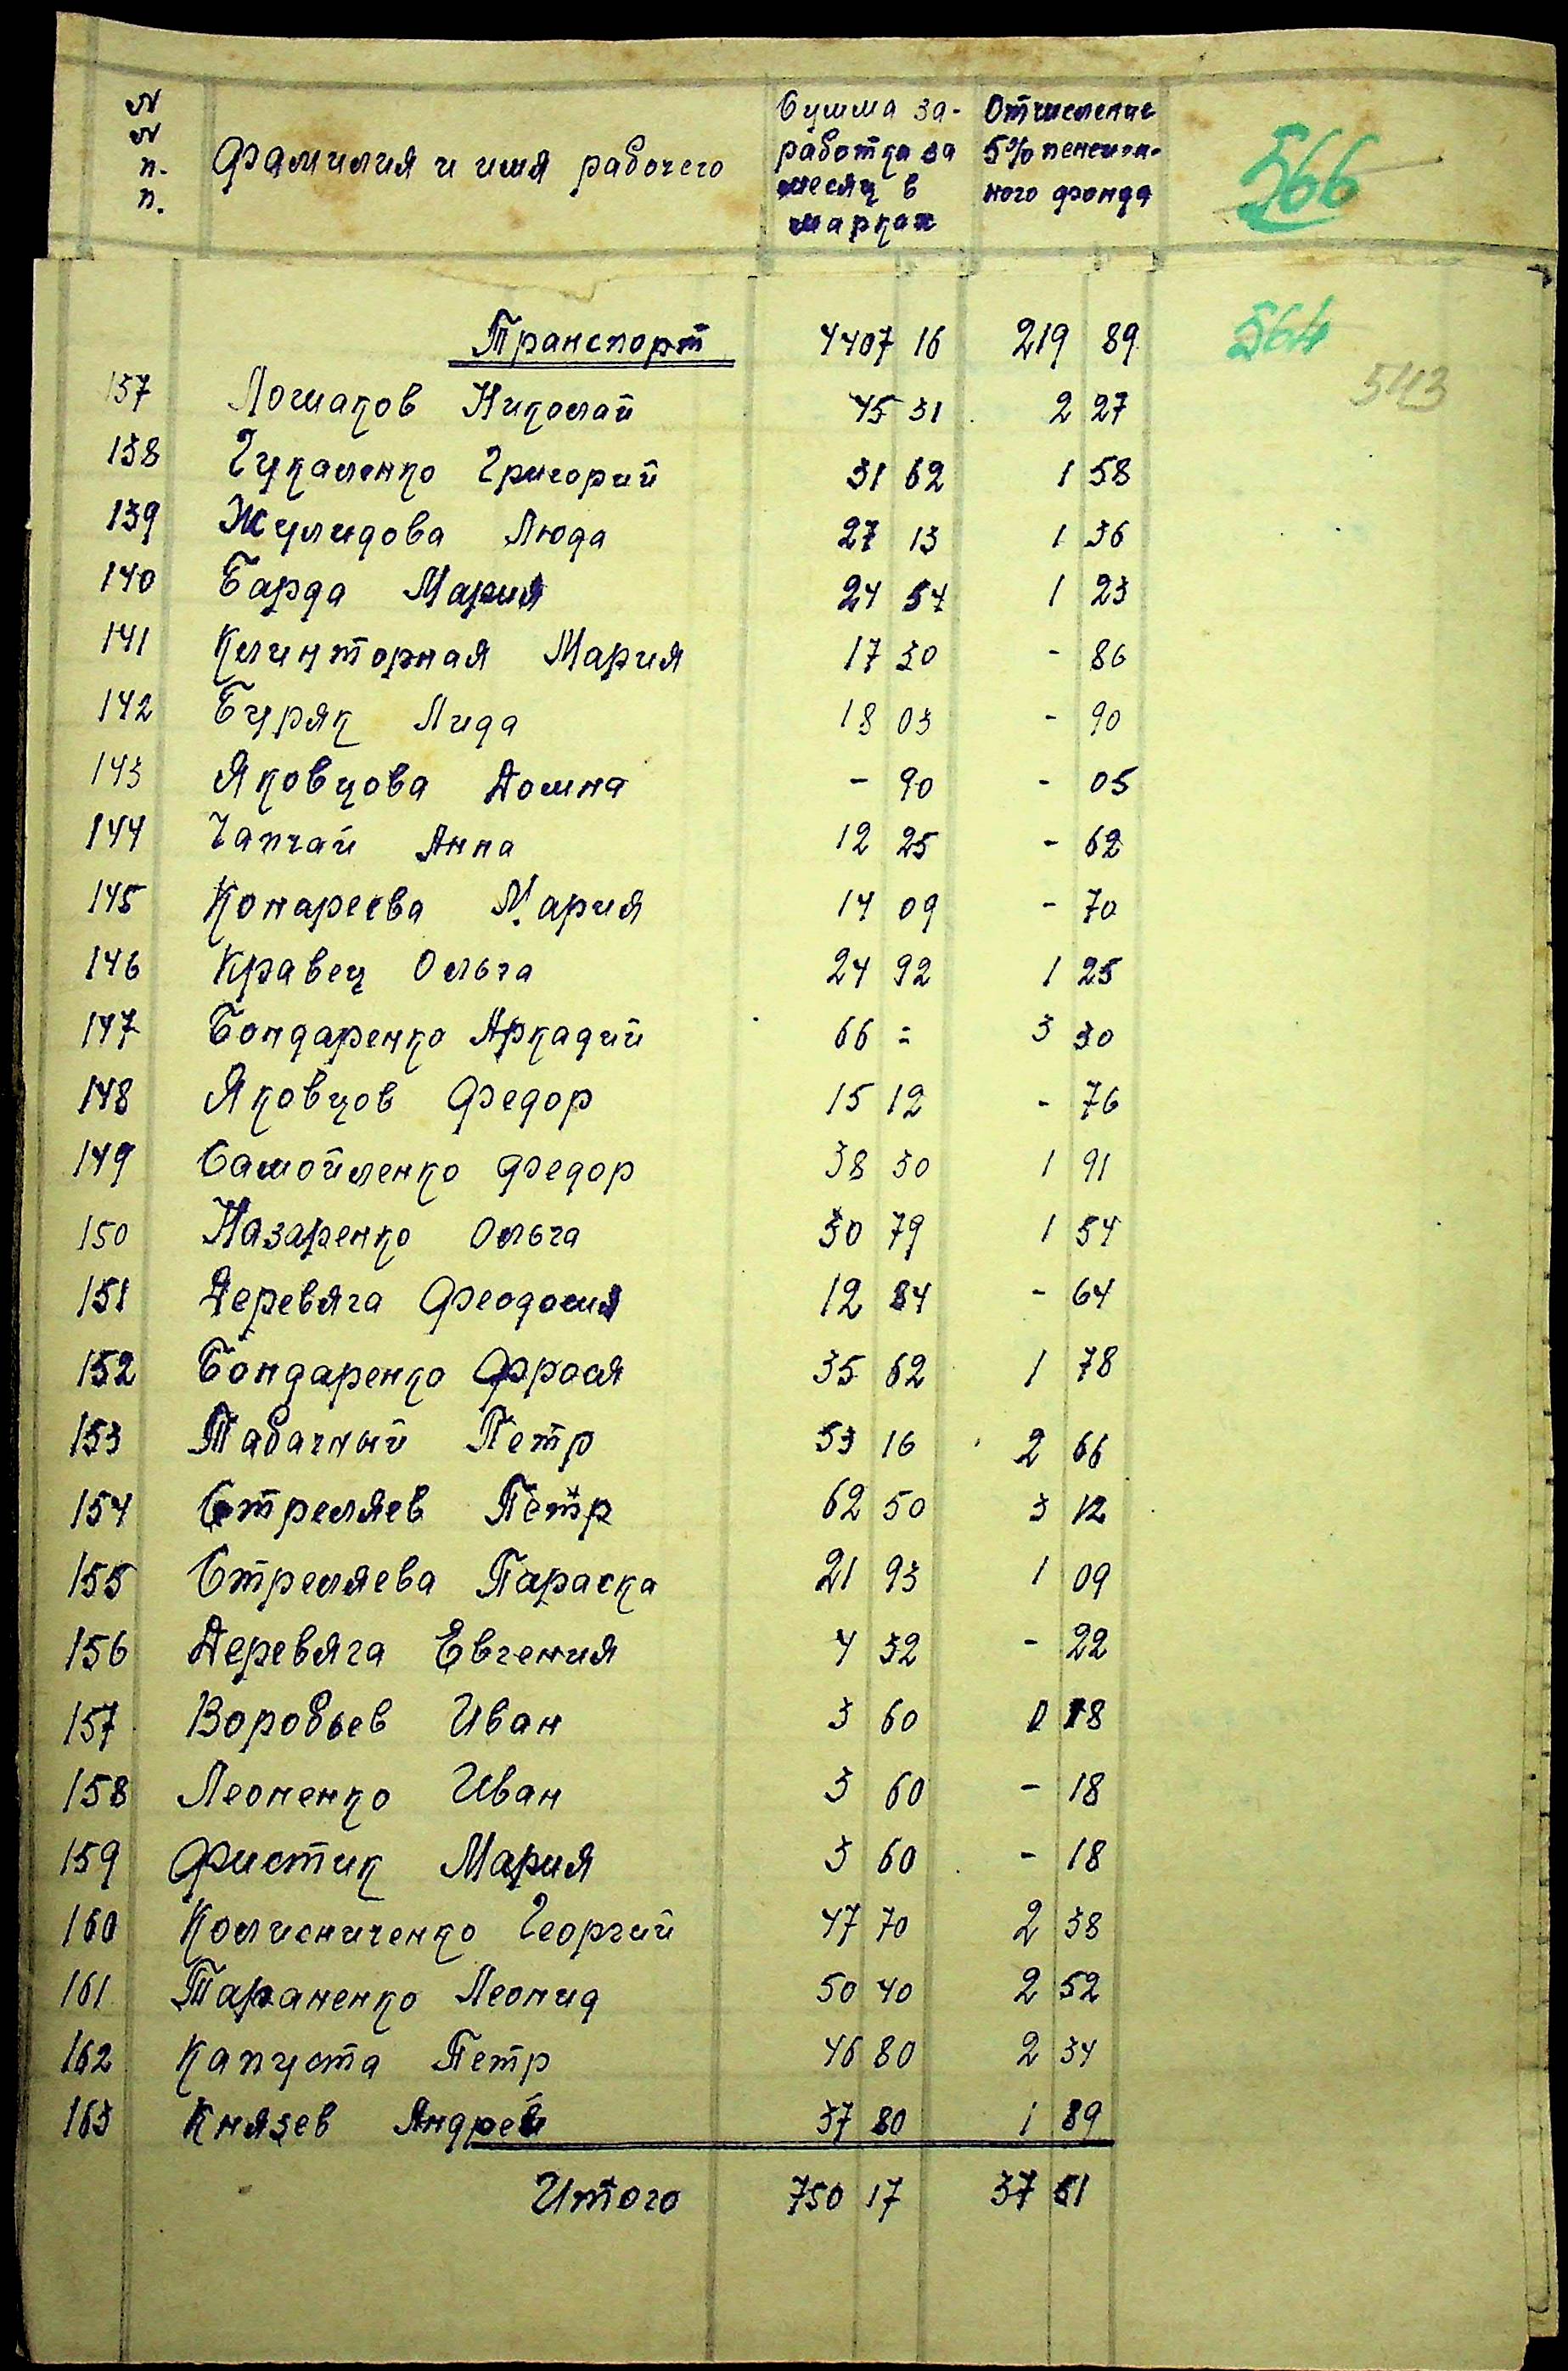 № № п. п. Фамилия и имя рабочего Сумма заработка за месяц в марках Отчисление 5% пенсионного фонда 566
Транспорт 4407 16 219 89 564
543
137 Ломаков Николай 45 31 2 27
138 Чукаленко Григорий 31 62 1 58
139 Жулидова Люда 27 13 1 36
140 Барда Мария 24 54 1 23
141 Клинторная Мария 17 30 - 86
142 Буряк Лида 18 03 - 90
143 Яковцова Домна - 90 - 05
144 Чапчай Анна 12 25 - 62
145 Конареева Мария 14 09 - 70
146 Кравец Ольга 24 92 1 25
147 Бондаренко Аркадий 66 = 3 30
148 Яковцов Федор 15 12 - 76
149 Самойленко Федор 38 30 1 91
150 Назаренко Ольга 30 79 1 54
151 Деревяга Феодосия 12 84 - 64
152 Бондаренко Фрося 35 62 1 78
153 Табачный Петр 53 16 2 66
154 Стреляев Петр 62 50 3 12
155 Стреляева Параска 21 93 1 09
156 Деревяга Евгения 4 32 - 22
157 Воробьев Иван 3 60 0 18
158 Леоненко Иван 3 60 - 18
159 Фистик Мария 3 60 - 18
160 Колисниченко Георгий 47 70 2 38
161 Тараненко Леонид 50 40 2 52
162 Капуста Петр 46 80 2 34
163 Князев Андрей 37 80 1 89
Итого 750 17 37 51